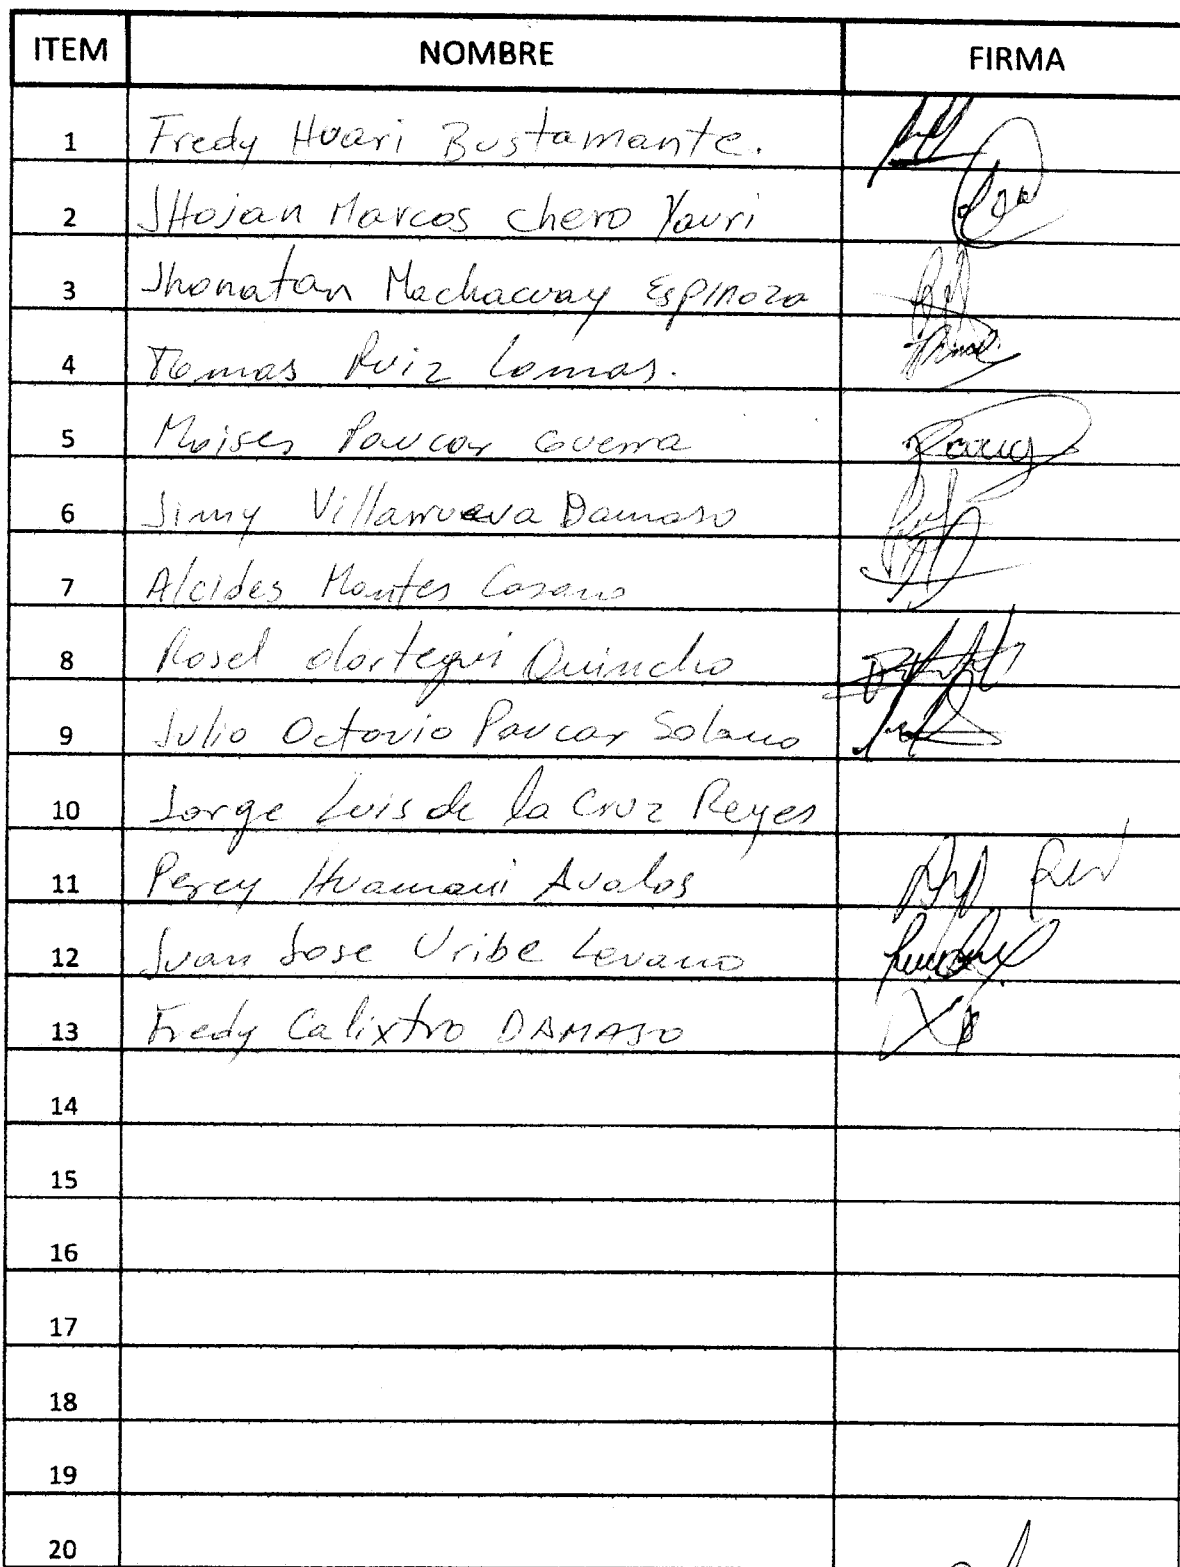 ITEM NOMBRE FIRMA
1 Fredy Huari Bustamante.
2 JHojan Marcos chero Yauri
3 Jhonatan Machacuay Espinoza
4 Tomas Ruiz Lomas.
5 Moises Paucar Guerra
6 Jimy Villanueva Damaso
7 Alcides Montes Casano
8 Rosel olortegui Quincho
9 Julio Octavio Paucar Solano
10 Jorge Luis de la Cruz Reyes
11 Percy Huamani Avalos
12 Juan Jose Uribe Levano
13 Fredy Calixtro DAMASO
14
15
16
17
18
19
20